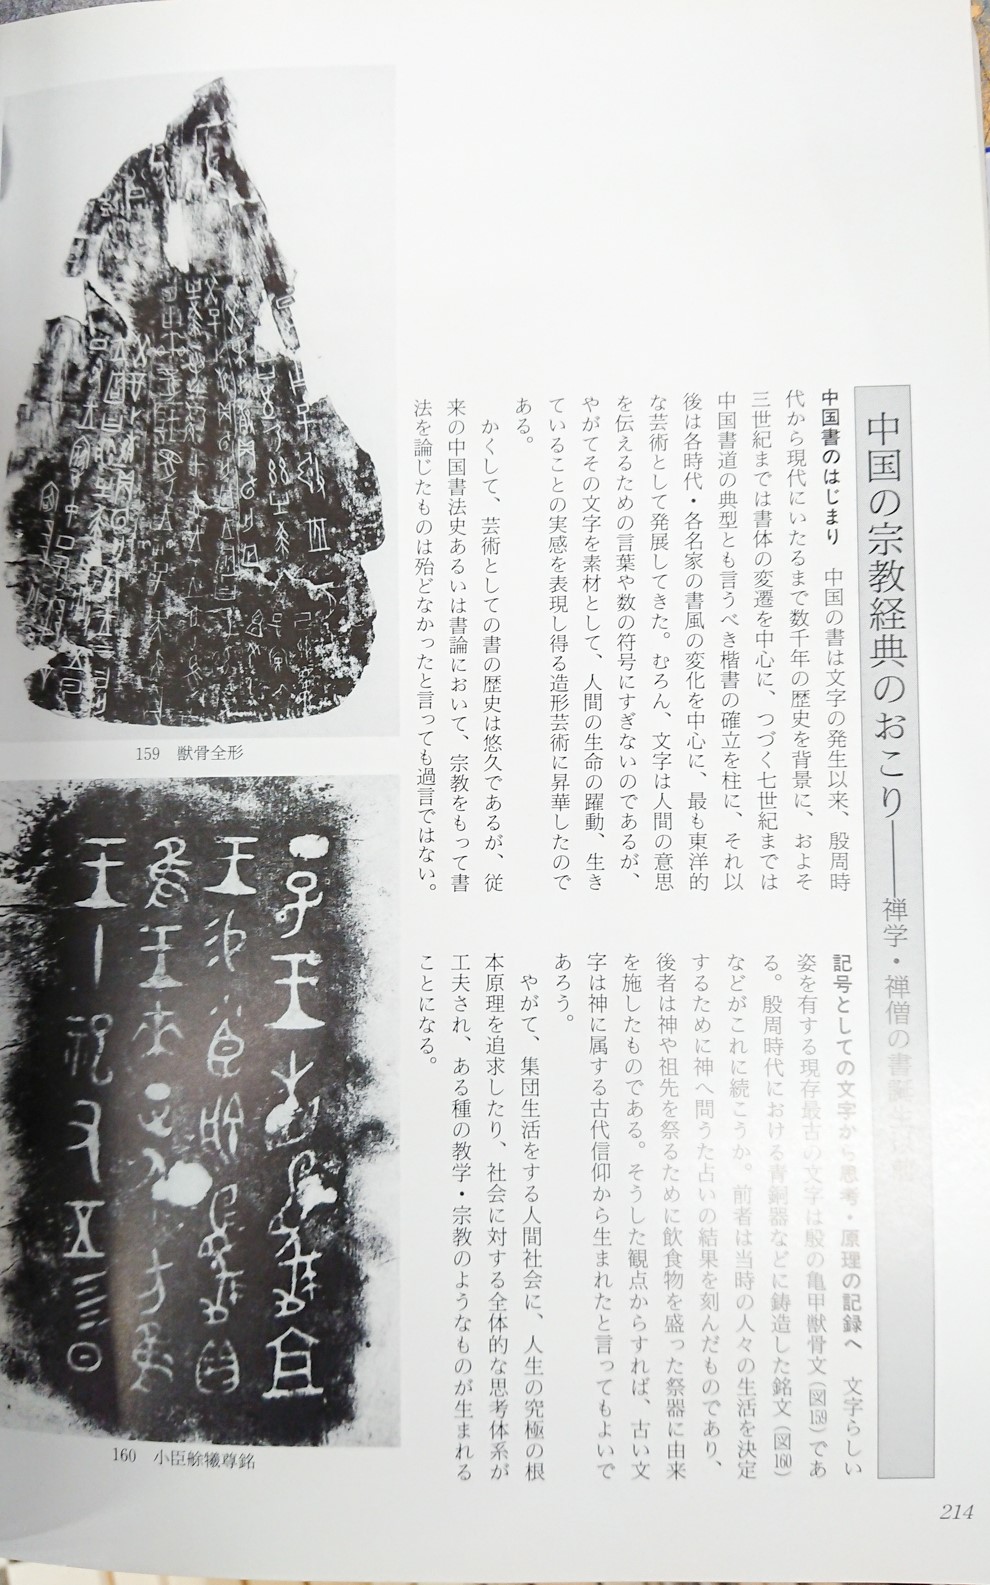 中国の宗教経典のおこり――禅学・禅僧の書
中国書のはじまり　中国の書は文字の発生以来、殷周時
代から現代にいたるまで数千年の歴史を背景に、およそ
三世紀までは書体の変遷を中心に、つづく七世紀までは
中国書道の典型とも言うべき楷書の確立を柱に、それ以
後は各時代・各名家の書風の変化を中心に、最も東洋的
な芸術として発展してきた。むろん、文字は人間の意思
を伝えるための言葉や数の符号にすぎないのであるが、
やがてその文字を素材として、人間の生命の躍動、生き
ていることの実感を表現し得る造形芸術に昇華したので
ある。
　かくして、芸術としての書の歴史は悠久であるが、従
来の中国書法史あるいは書論において、宗教をもって書
法を論じたものは殆どなかったと言っても過言ではない。
記号としての文字から思考・原理の記録へ　文字らしい
姿を有する現存最古の文字は殷の亀甲獣骨文（図159）であ
る。殷周時代における青銅器などに鋳造した銘文（図160）
などがこれに続こうか。前者は当時の人々の生活を決定
するために神へ問うた占いの結果を刻んだものであり、
後者は神や祖先を祭るために飲食物を盛った祭器に由来
を施したものである。そうした観点からすれば、古い文
字は神に属する古代信仰から生まれたと言ってもよいで
あろう。
　やがて、集団生活をする人間社会に、人生の究極の根
本原理を追求したり、社会に対する全体的な思考体系が
工夫され、ある種の教学・宗教のようなものが生まれる
ことになる。
159　獣骨全形
160　小臣艅犠尊銘
214